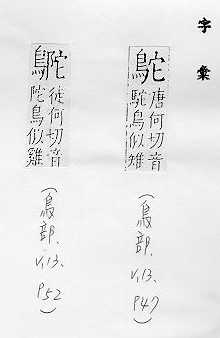 字彙
鴕
唐何切音
駝鳥似雉
(鳥部、v.13、p47)
徒何切音
陀鳥似雞
(鳥部、v.13、p52)